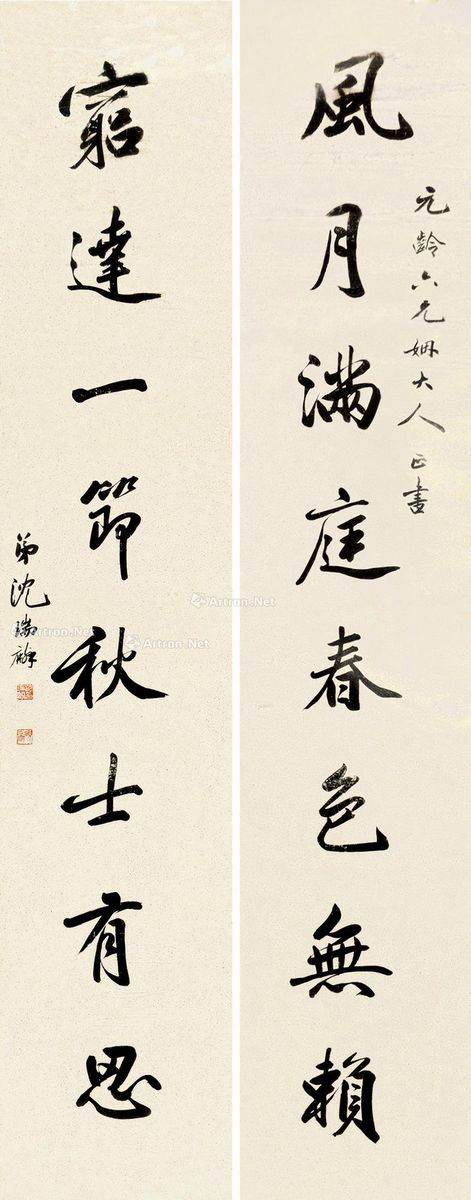 元齡六兄姻大人正書
風月滿庭春色無賴
窮達一節秋士有思
弟沈瑞麟
Artron.Net
Artron.Net
Artron.Net
Artron.Net